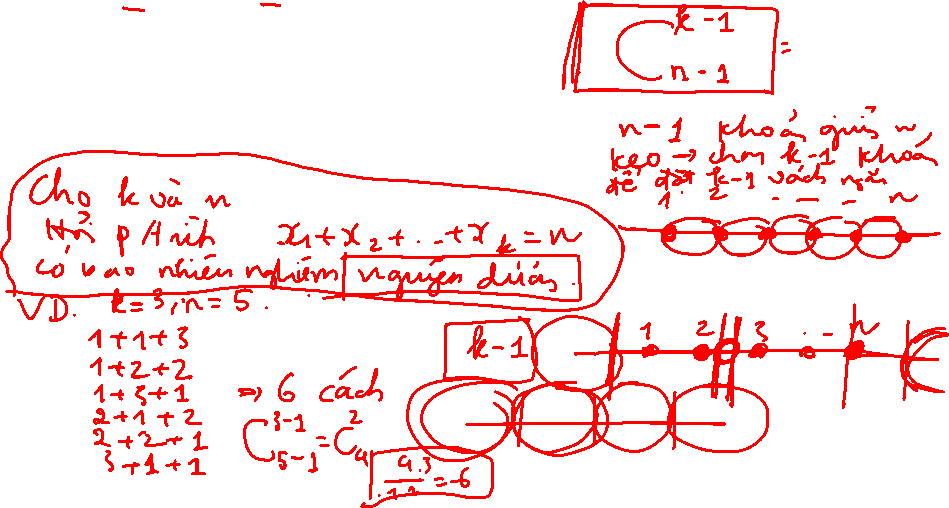 C k-1 n-1 =
n-1 khoảng giữa n
kẹo → chọn k-1 khoảng
để đặt k-1 vách ngăn
1 2 - - - n
Cho k và n
Hỏi p trình x1 + x2 + ... + xk = n
có bao nhiêu nghiệm nguyên dương.
VD. k = 3, n = 5.
1+1+3
1+2+2
1+3+1
2+1+2
2+2+1
3+1+1
⇒ 6 cách
C 3-1 5-1 = C 2 4
4.3 / 1.2 = 6
k-1
1 2 3 . - n